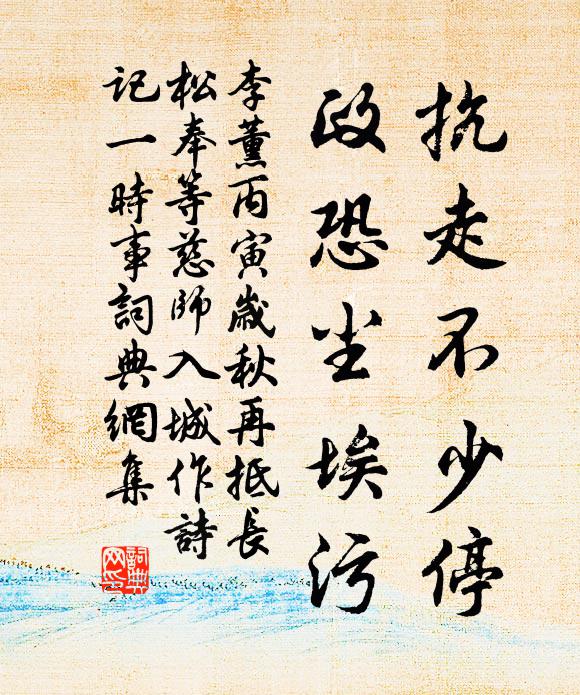 抗走不少停
政恐尘埃污
李薰丙寅歲秋再抵長
松奉等慈師入城作詩
記一時事詞典網集